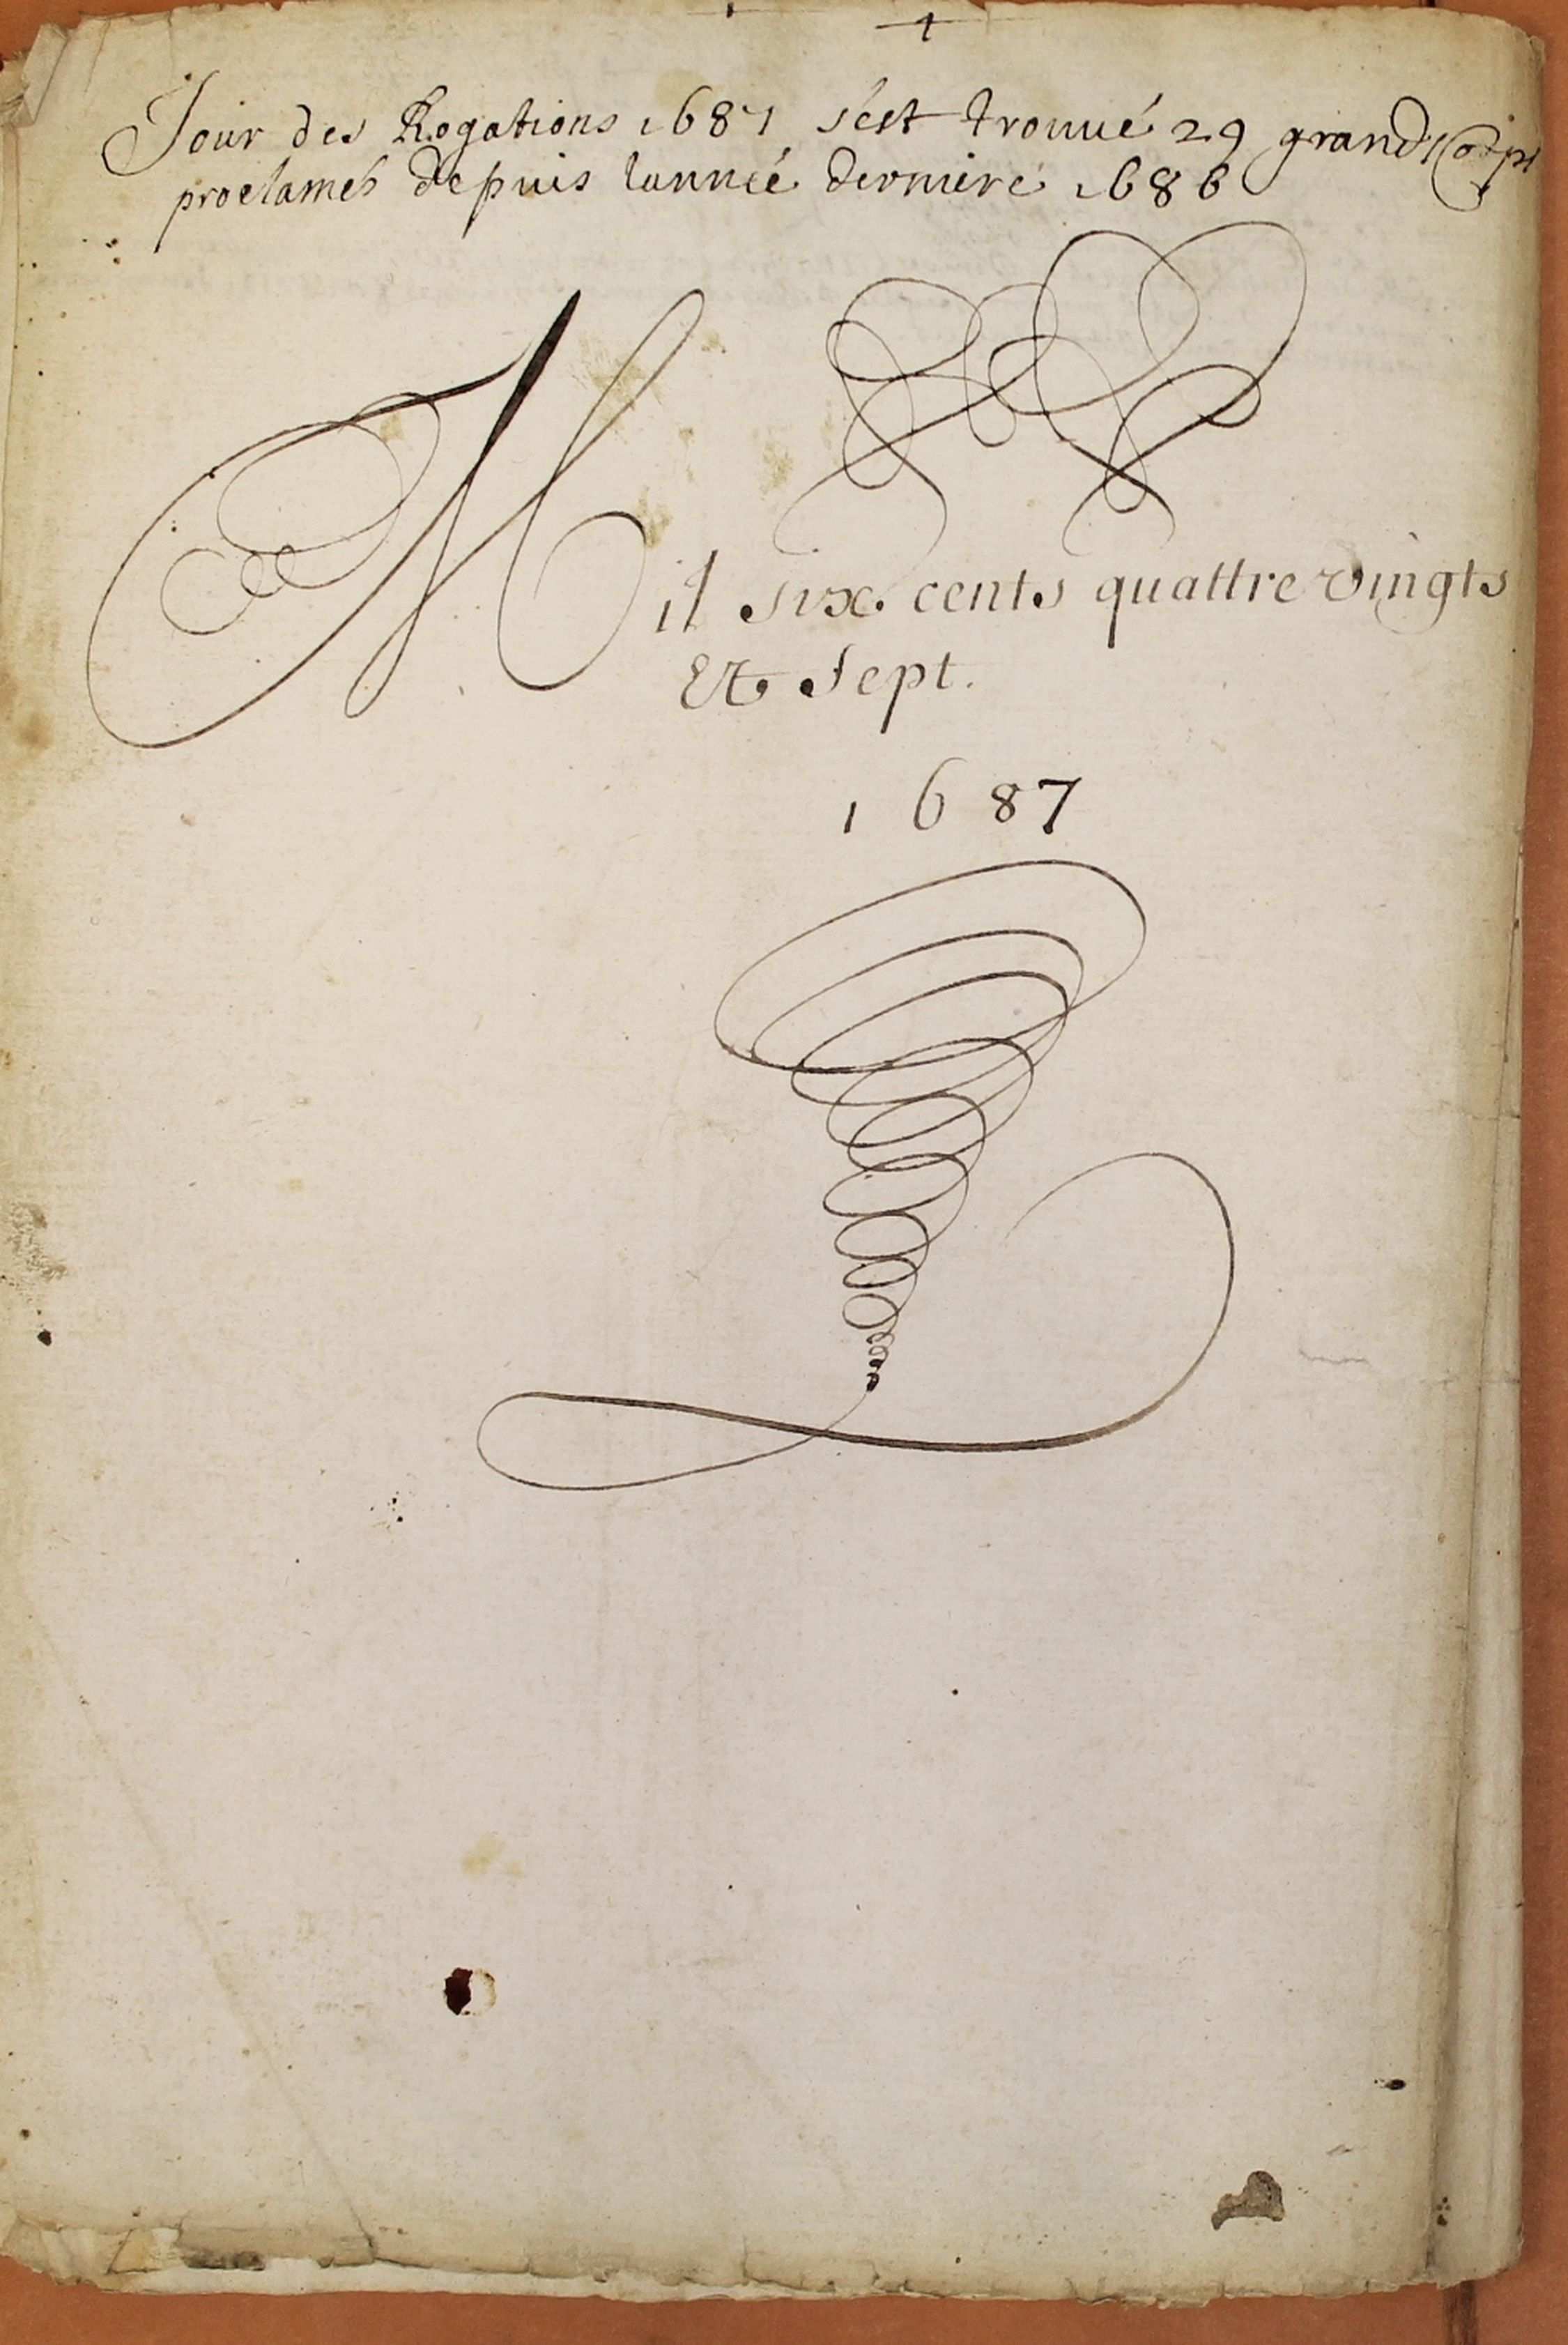 Jour des Rogations 1687 s'est trouué 29 grands Corps
proclamés depuis lannéé derniere 1686
Mil six cents quattre vingts
Et sept.
1687